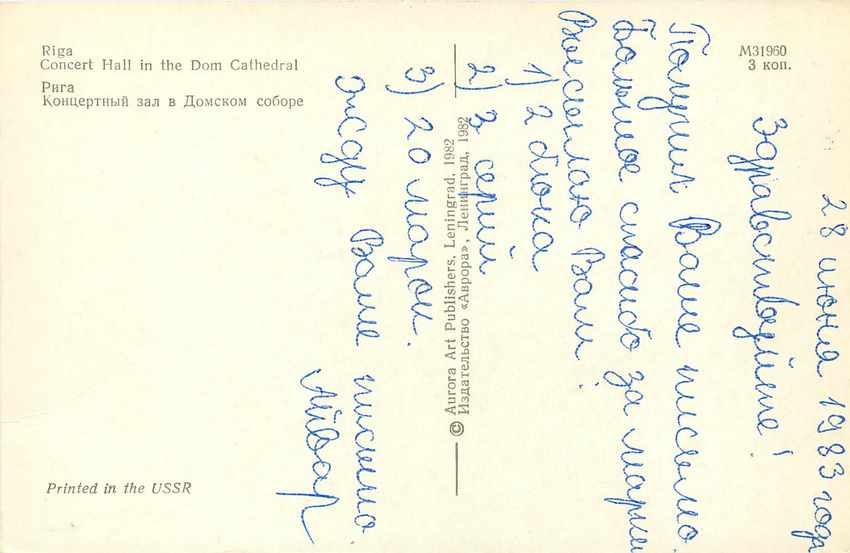 Riga
Concert Hall in the Dom Cathedral
Рига
Концертный зал в Домском соборе
М31960
3 коп.
28 июня 1983 года
Здравствуйте!
Получил Ваше письмо.
Большое спасибо за марки
Высылаю Вам:
1) 2 блока
2) 3 серий
3) 20 марок.
Жду Ваше письмо.
Айвар
© Aurora Art Publishers, Leningrad, 1982
Издательство «Аврора», Ленинград, 1982
Printed in the USSR